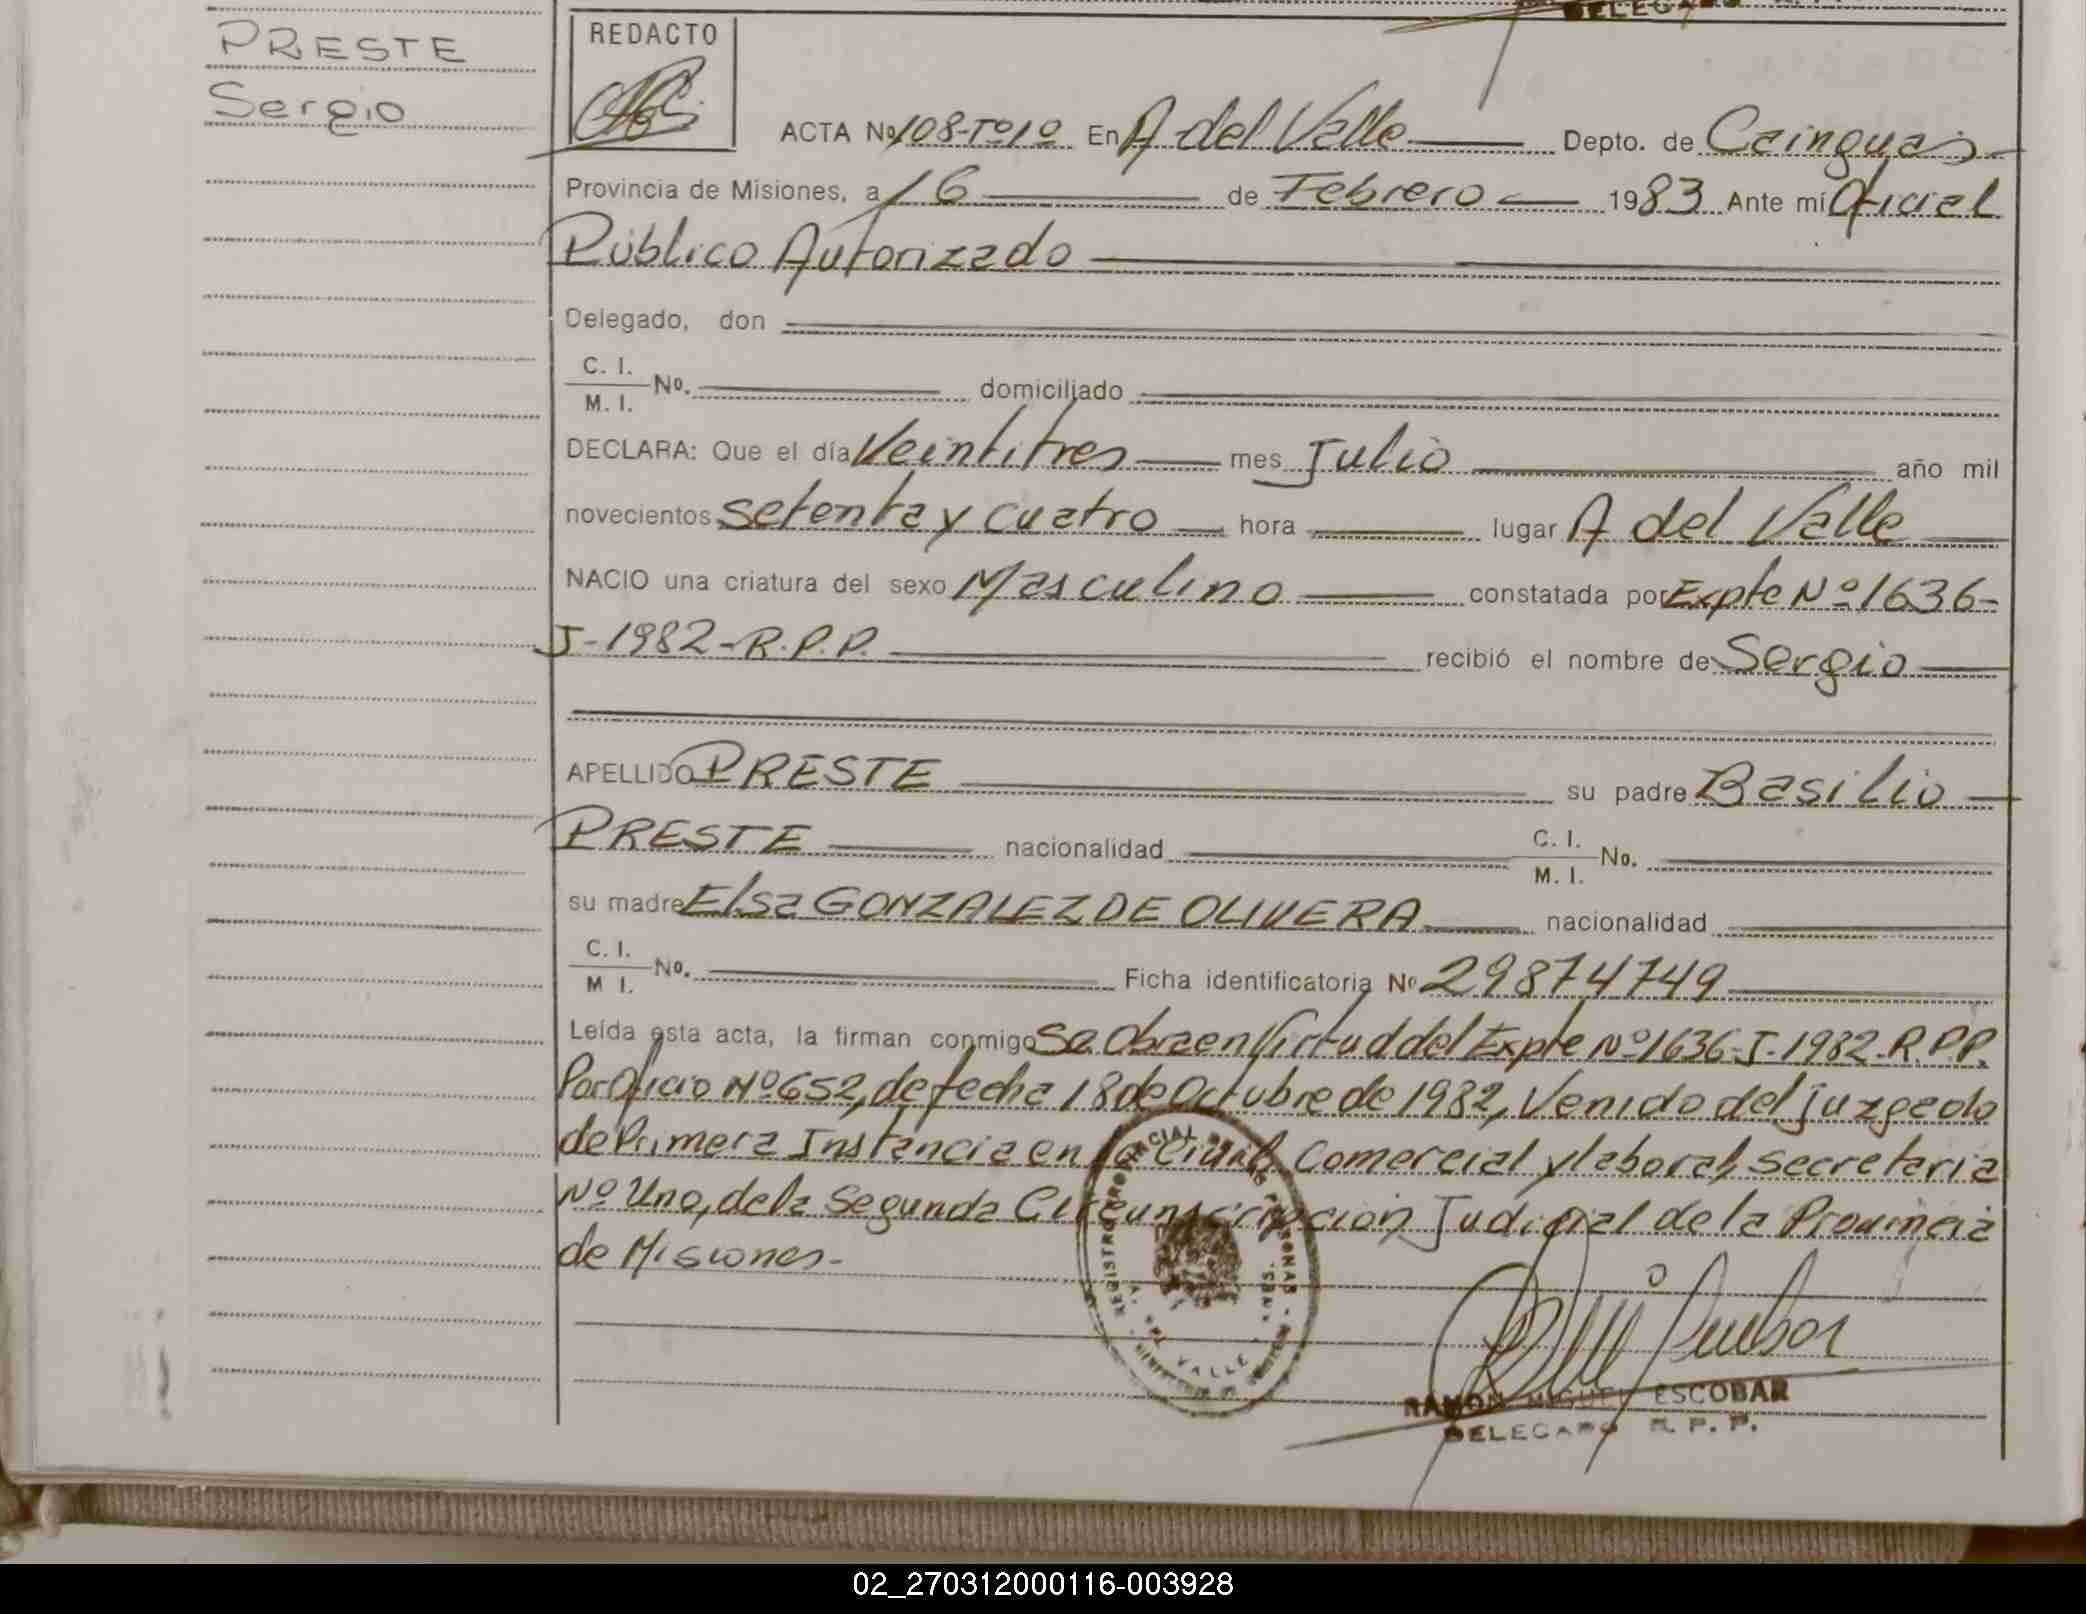 DELEGADO
PRESTE
Sergio
REDACTO
ACTA Nº 108-Tº1º En A del Valle Depto. de Cainguas
Provincia de Misiones, a 16 de Febrero 1983 Ante mí Oficial
Público Autorizado
Delegado, don
C. I.
M. I. No. domiciliado
DECLARA: Que el día Veintitres mes Julio año mil
novecientos setenta y cuatro hora lugar A del Valle
NACIO una criatura del sexo Masculino constatada por Expte Nº 1636-
J-1982-R.P.P. recibió el nombre de Sergio
APELLIDO PRESTE su padre Basilio
PRESTE nacionalidad C. I.
M. I. No.
su madre Elsa GONZALEZ DE OLIVERA nacionalidad
C. I.
M I. No. Ficha identificatoria Nº 29874749
Leída esta acta, la firman conmigo Se Obra en Virtud del Expte Nº 1636-J-1982-R.P.P.
Por Oficio Nº 652, de fecha 18 de Octubre de 1982, Venido del juzgado
de Primera Instancia en lo Civil, Comercial y laboral, secretaria
Nº Uno, de la Segunda Circunscripción Judicial de la Provincia
de Misiones.-
REGISTRO PROVINCIAL DE LAS PERSONAS
A. DEL VALLE
RAMON MIGUEL ESCOBAR
DELEGADO R. P. P.
02_270312000116-003928